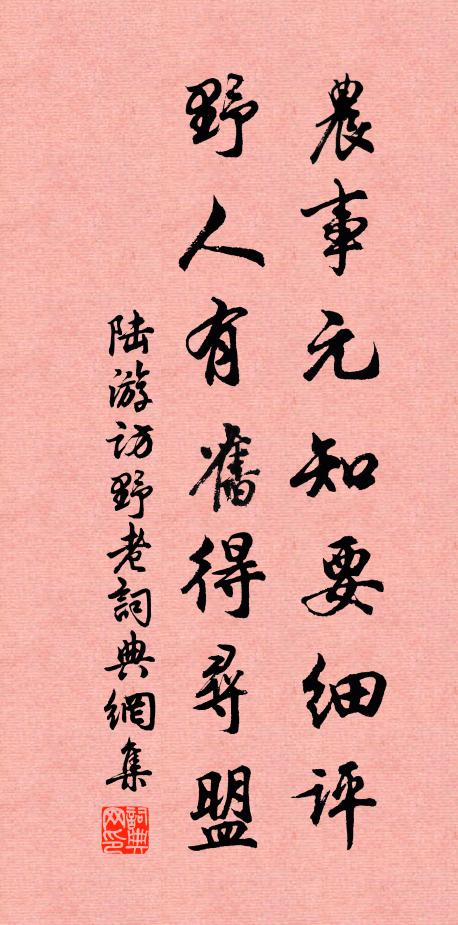 農事元知要細評
野人有舊得尋盟
陆游访野老詞典網集
詞典网印